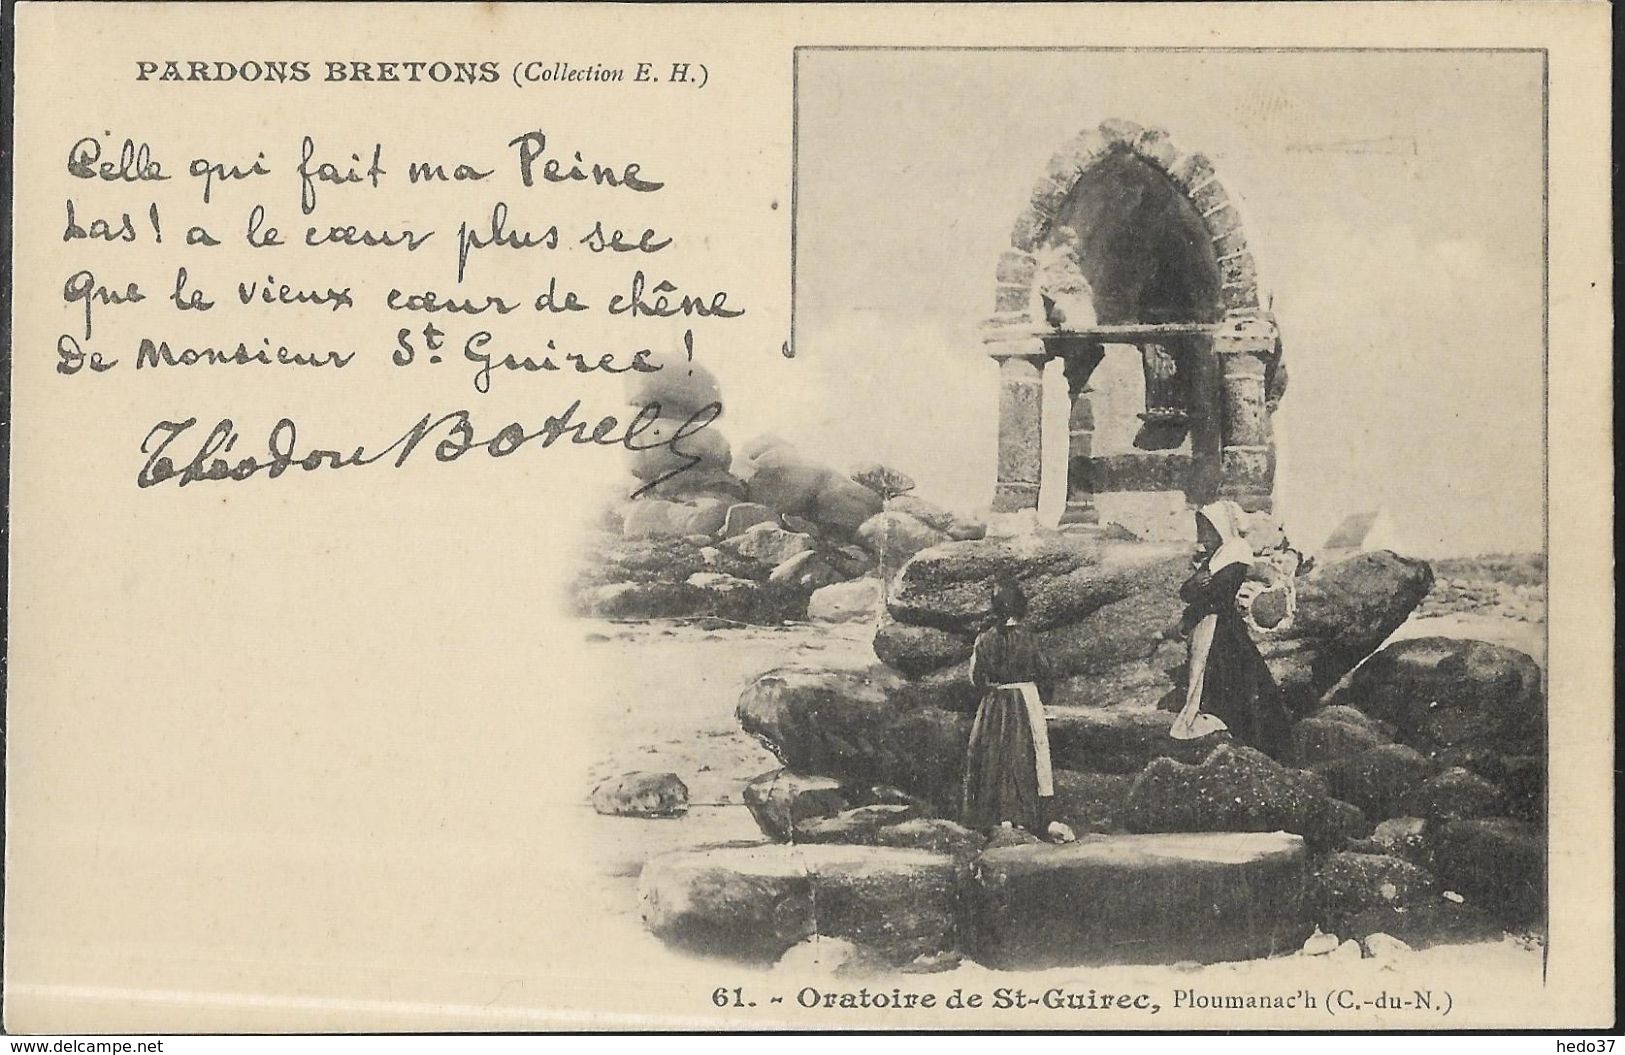 PARDONS BRETONS (Collection E. H.)
Celle qui fait ma Peine
Las ! a le cœur plus sec
Que le vieux cœur de chêne
De Monsieur St. Guirec !
Théodore Botrel
61. - Oratoire de St-Guirec, Ploumanac'h (C.-du-N.)
www.delcampe.net
hedo37